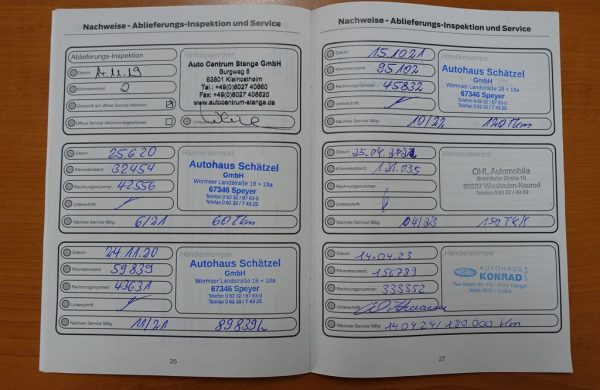 Nachweise - Ablieferungs-Inspektion und Service
Ablieferungs-Inspektion
Vertragspartner
Datum: 4.11.19
Kilometerstand: 0
Überprüft auf offene Service Aktionen:
Offene Service Aktionen abgearbeitet:
Auto Centrum Stange GmbH
Burgweg 5
63801 Kleinostheim
Tel.: +49(0)6027 40860
Fax: +49(0)6027 408620
www.autocentrum-stange.de
Datum: 25.6.20
Kilometerstand: 32454
Rechnungsnummer: 42556
Unterschrift:
Nächste Service fällig: 6/21 60Tkm
Händlerstempel
Autohaus Schätzel
GmbH
Wormser Landstraße 18 + 18a
67346 Speyer
Telefon 0 62 32 / 67 63-0
Telefax 0 62 32 / 7 43 25
Datum: 24.11.20
Kilometerstand: 59839
Rechnungsnummer: 43631
Unterschrift:
Nächste Service fällig: 11/21 89839
Händlerstempel
Autohaus Schätzel
GmbH
Wormser Landstraße 18 + 18a
67346 Speyer
Telefon 0 62 32 / 67 63-0
Telefax 0 62 32 / 7 43 25
26
Nachweise - Ablieferungs-Inspektion und Service
Datum: 15.10.21
Kilometerstand: 95102
Rechnungsnummer: 45832
Unterschrift:
Nächste Service fällig: 10/22 120Tkm
Händlerstempel
Autohaus Schätzel
GmbH
Wormser Landstraße 18 + 18a
67346 Speyer
Telefon 0 62 32 / 67 63-0
Telefax 0 62 32 / 7 43 25
Datum: 25.04.
Kilometerstand: 121.035
Rechnungsnummer:
Unterschrift:
Nächste Service fällig: 04/23
Händlerstempel
OHL Automobile
65207 Wiesbaden-Naurod
Datum: 14.04.23
Kilometerstand: 156789
Rechnungsnummer: 333352
Unterschrift:
Nächste Service fällig: 14.04.24/180.000 Km
Händlerstempel
AUTOHAUS
KONRAD
27